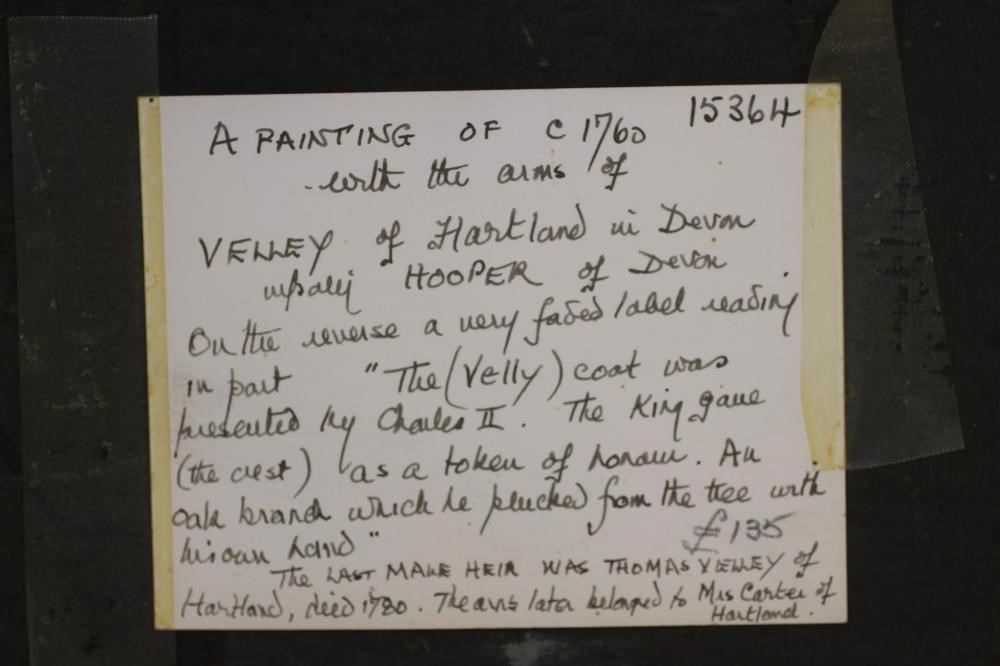 15364
A PAINTING OF C 1760
with the arms of
VELLEY of Hartland in Devon
HOOPER of Devon
On the reverse a very faded label reading
in part "The (Velly) coat was
presented by Charles II. The King gave
(the crest) as a token of honour. An
oak branch which he plucked from the tree with
his own hand"
£135
The LAST MALE HEIR WAS THOMAS VELLEY of
Hartland, died 1780. The arms later belonged to Mrs Carter of
Hartland.